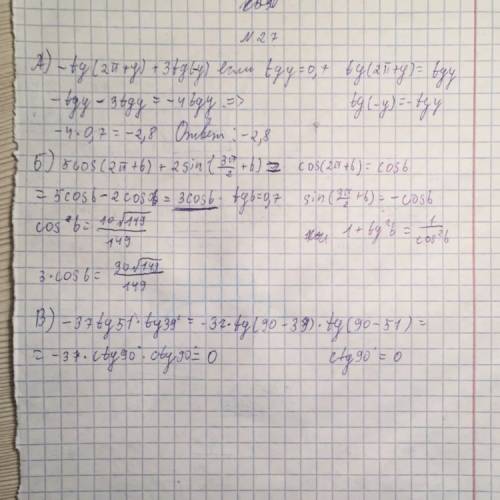 №27
А) -tg(2π+y) + 3tg(-y) если tgy=0,7 tg(2π+y)= tgy
-tgy - 3tgy = -4tgy => tg(-y)=-tgy
-4·0,7 = -2,8 Ответ: -2,8
Б) 5cos(2π+b) + 2sin(3π/2+b) = cos(2π+b) = cosb
= 5cosb - 2cosb = 3cosb · tgb=0,7 sin(3π/2+b) = -cosb
cos²b = 10√149/149 1+tg²b = 1/cos²b
3·cosb = 30√149/149
В) -37tg51°·tg39° = -37·tg(90-39)·tg(90-51) =
= -37·ctg90°·ctg90° = 0 ctg90° = 0